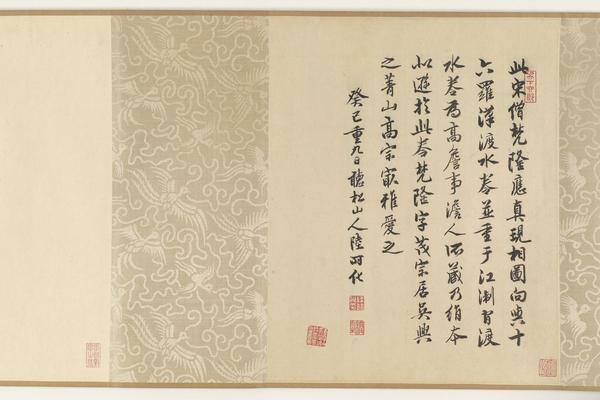 此宋僧梵隆應真現相圖向與十
六羅漢渡水卷並重于江淛渡
水卷為高詹事澹人所藏乃絹本
似遜於此卷梵隆字茂宗居吳興
之菁山高宗㝡雅愛之
癸巳重九日聽松山人陸時化